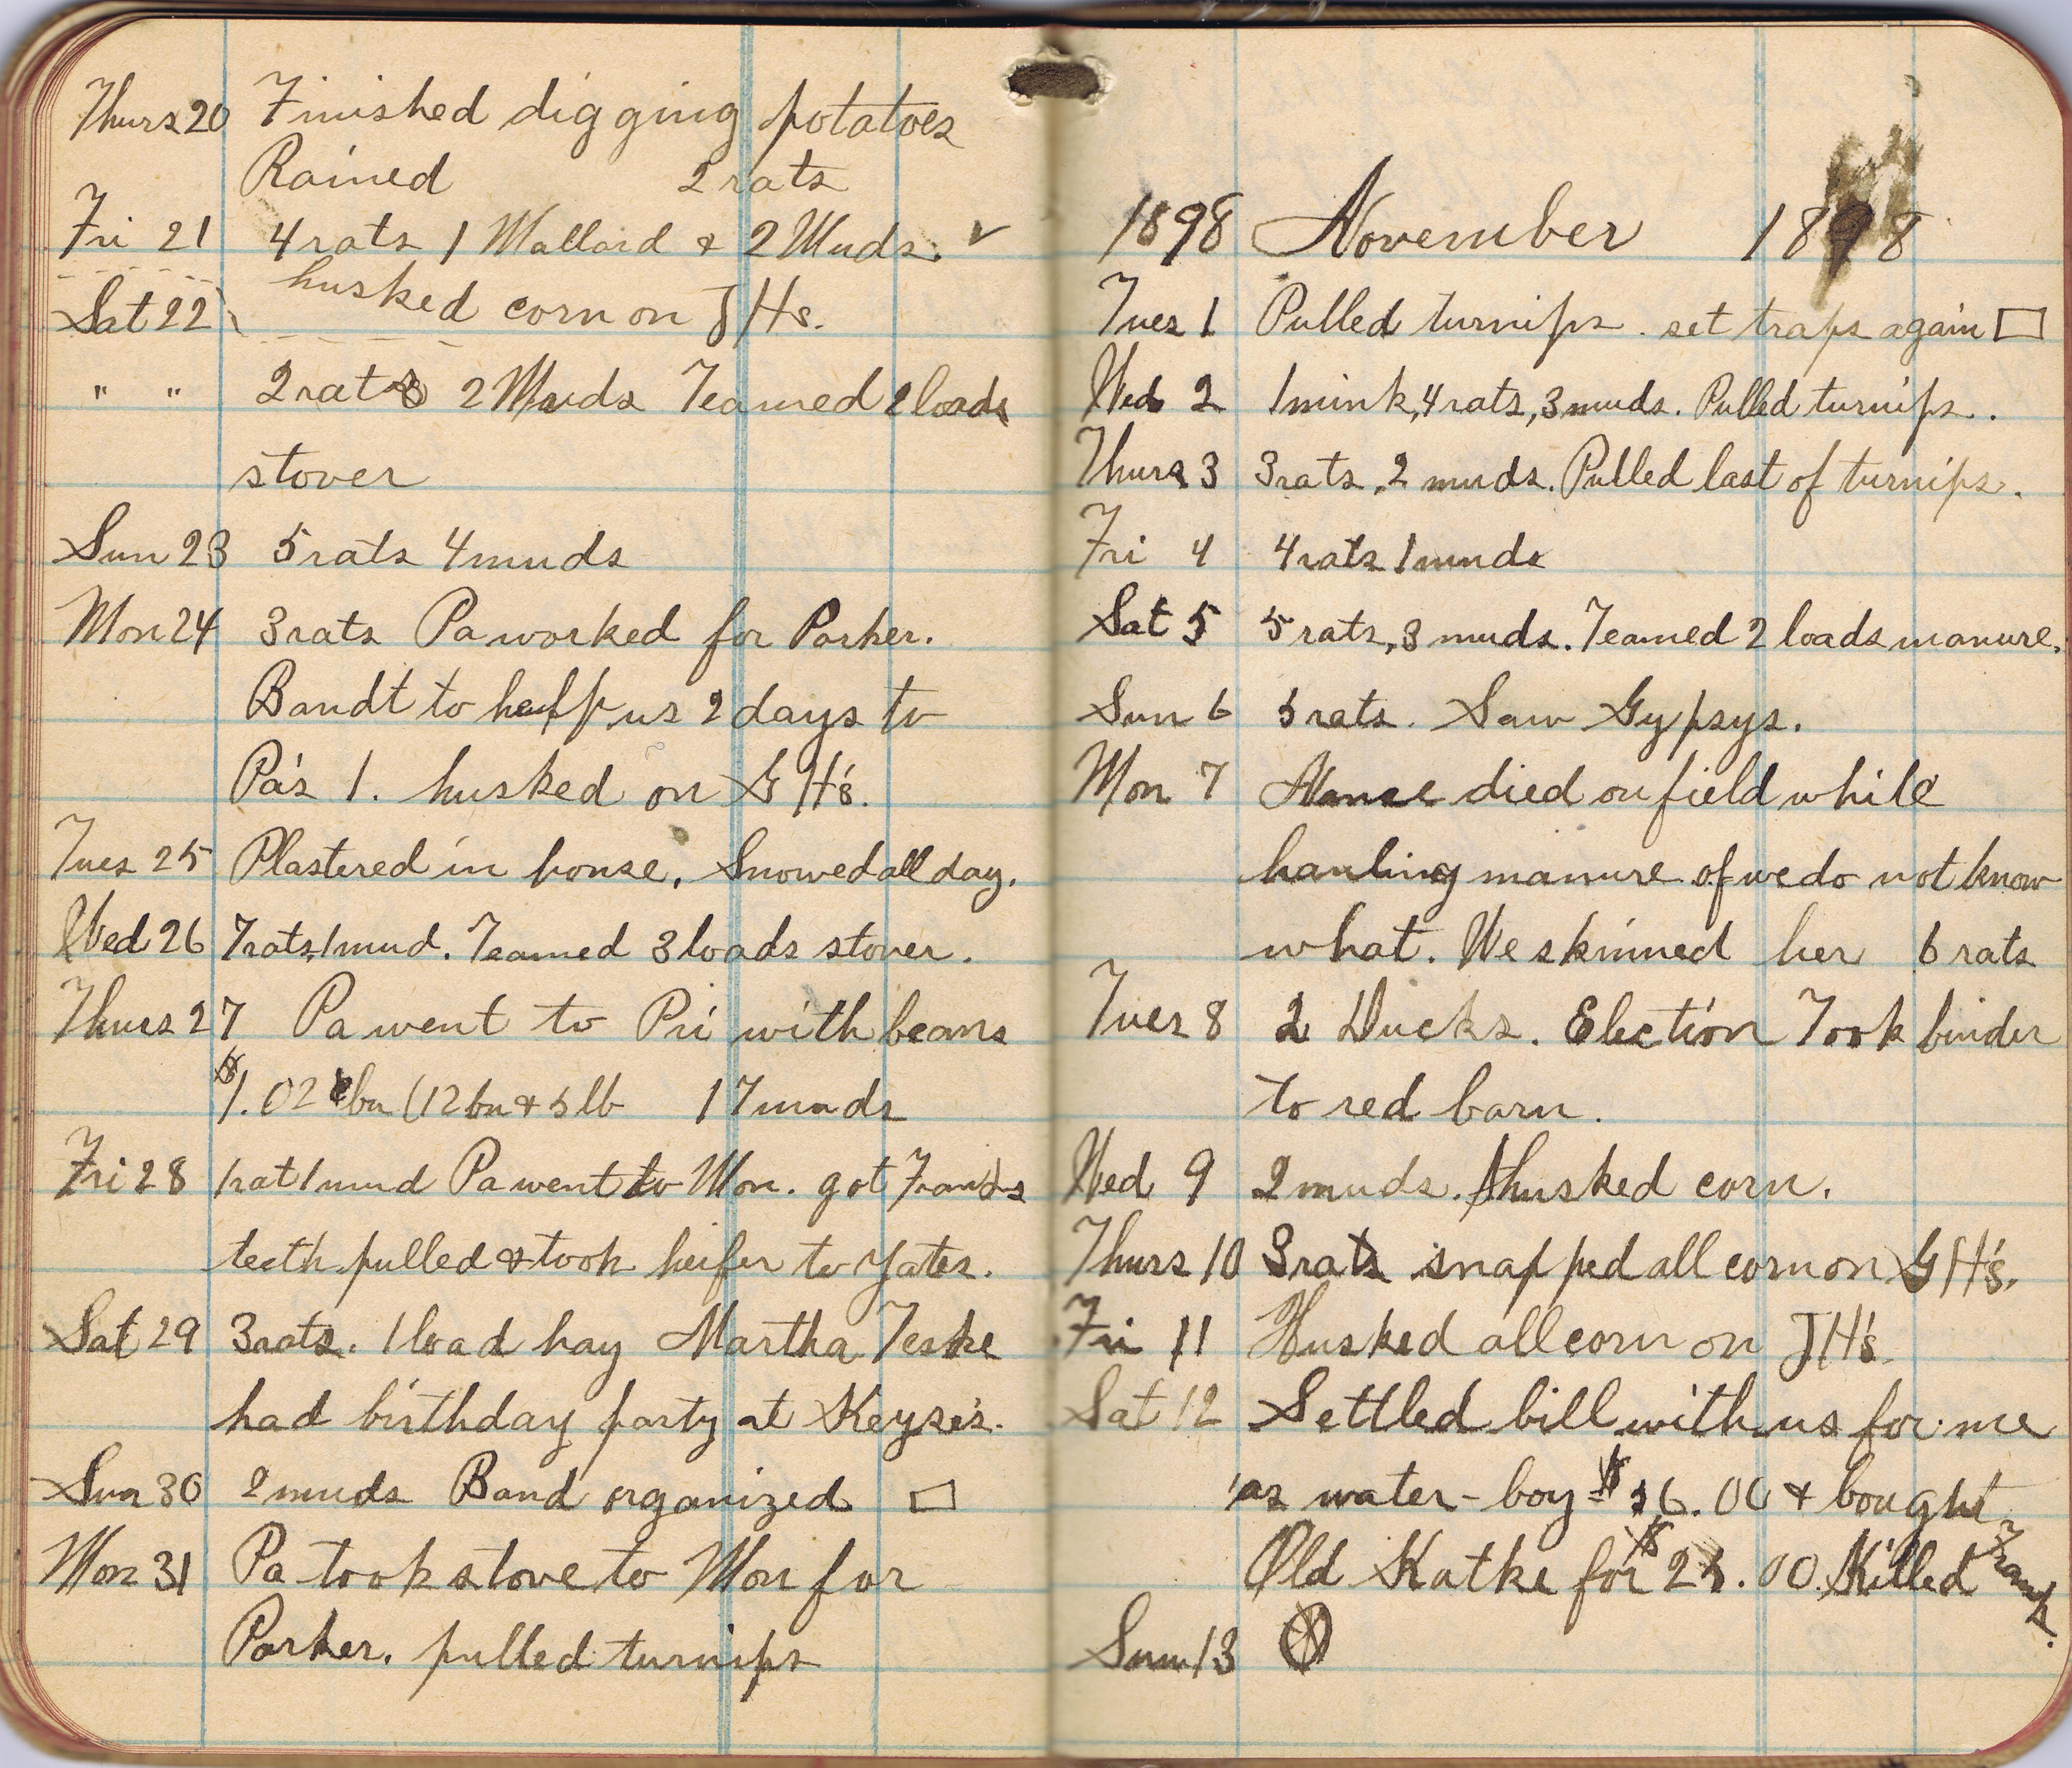 Thurs 20 Finished digging potatoes
Rained 2 rats
Fri 21 4 rats 1 Mallard & 2 Muds. ✓
husked corn on J Hs.
Sat 22
" " 2 rats 2 Muds Teamed 2 loads
stover
Sun 23 5 rats 4 muds
Mon 24 3 rats Pa worked for Parker.
Bandt to help us 2 days to
Pa's 1. husked on G H's.
Tues 25 Plastered in house. Snowed all day.
Wed 26 7 rats, 1 mud. Teamed 3 loads stover.
Thurs 27 Pa went to Pri with beans
$1.02 bu (12 bu & 5 lb 17 muds
Fri 28 1 rat 1 mud Pa went to Mon. got
teeth pulled & took heifer to Yates.
Sat 29 3 rats. 1 load hay Martha Teske
had birthday party at Keyse's.
Sun 30 2 muds Band organized
Mon 31 Pa took stove to Mon for
Parker. pulled turnips
1898 November 1898
Tues 1 Pulled turnips. set traps again
Wed 2 1 mink, 4 rats, 3 muds. Pulled turnips.
Thurs 3 3 rats, 2 muds. Pulled last of turnips.
Fri 4 4 rats 1 muds
Sat 5 5 rats, 3 muds. Teamed 2 loads manure.
Sun 6 5 rats. Saw Gypsys.
Mon 7 Nance died on field while
hauling manure of we do not know
what. We skinned her 6 rats
Tues 8 2 Ducks. Election Took binder
to red barn.
Wed 9 2 muds. husked corn.
Thurs 10 3 rats snapped all corn on G H's.
Fri 11 Husked all corn on J H's.
Sat 12 Settled bill with us for me
as water-boy $ 6.00 & bought
Old Katke for $ 25.00. Killed
Sun 13